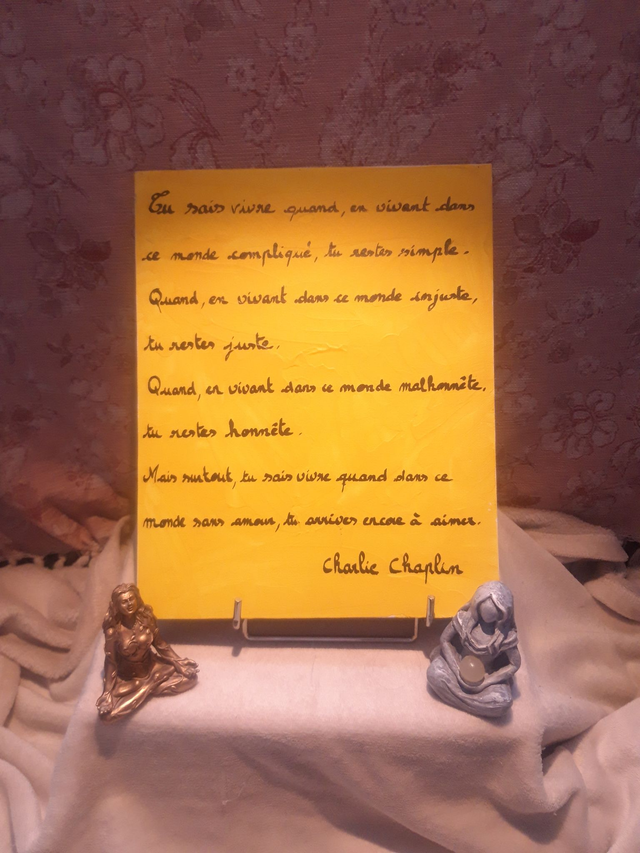 Tu sais vivre quand, en vivant dans
ce monde compliqué, tu restes simple.
Quand, en vivant dans ce monde injuste,
tu restes juste.
Quand, en vivant dans ce monde malhonnête,
tu restes honnête.
Mais surtout, tu sais vivre quand dans ce
monde sans amour, tu arrives encore à aimer.
Charlie Chaplin